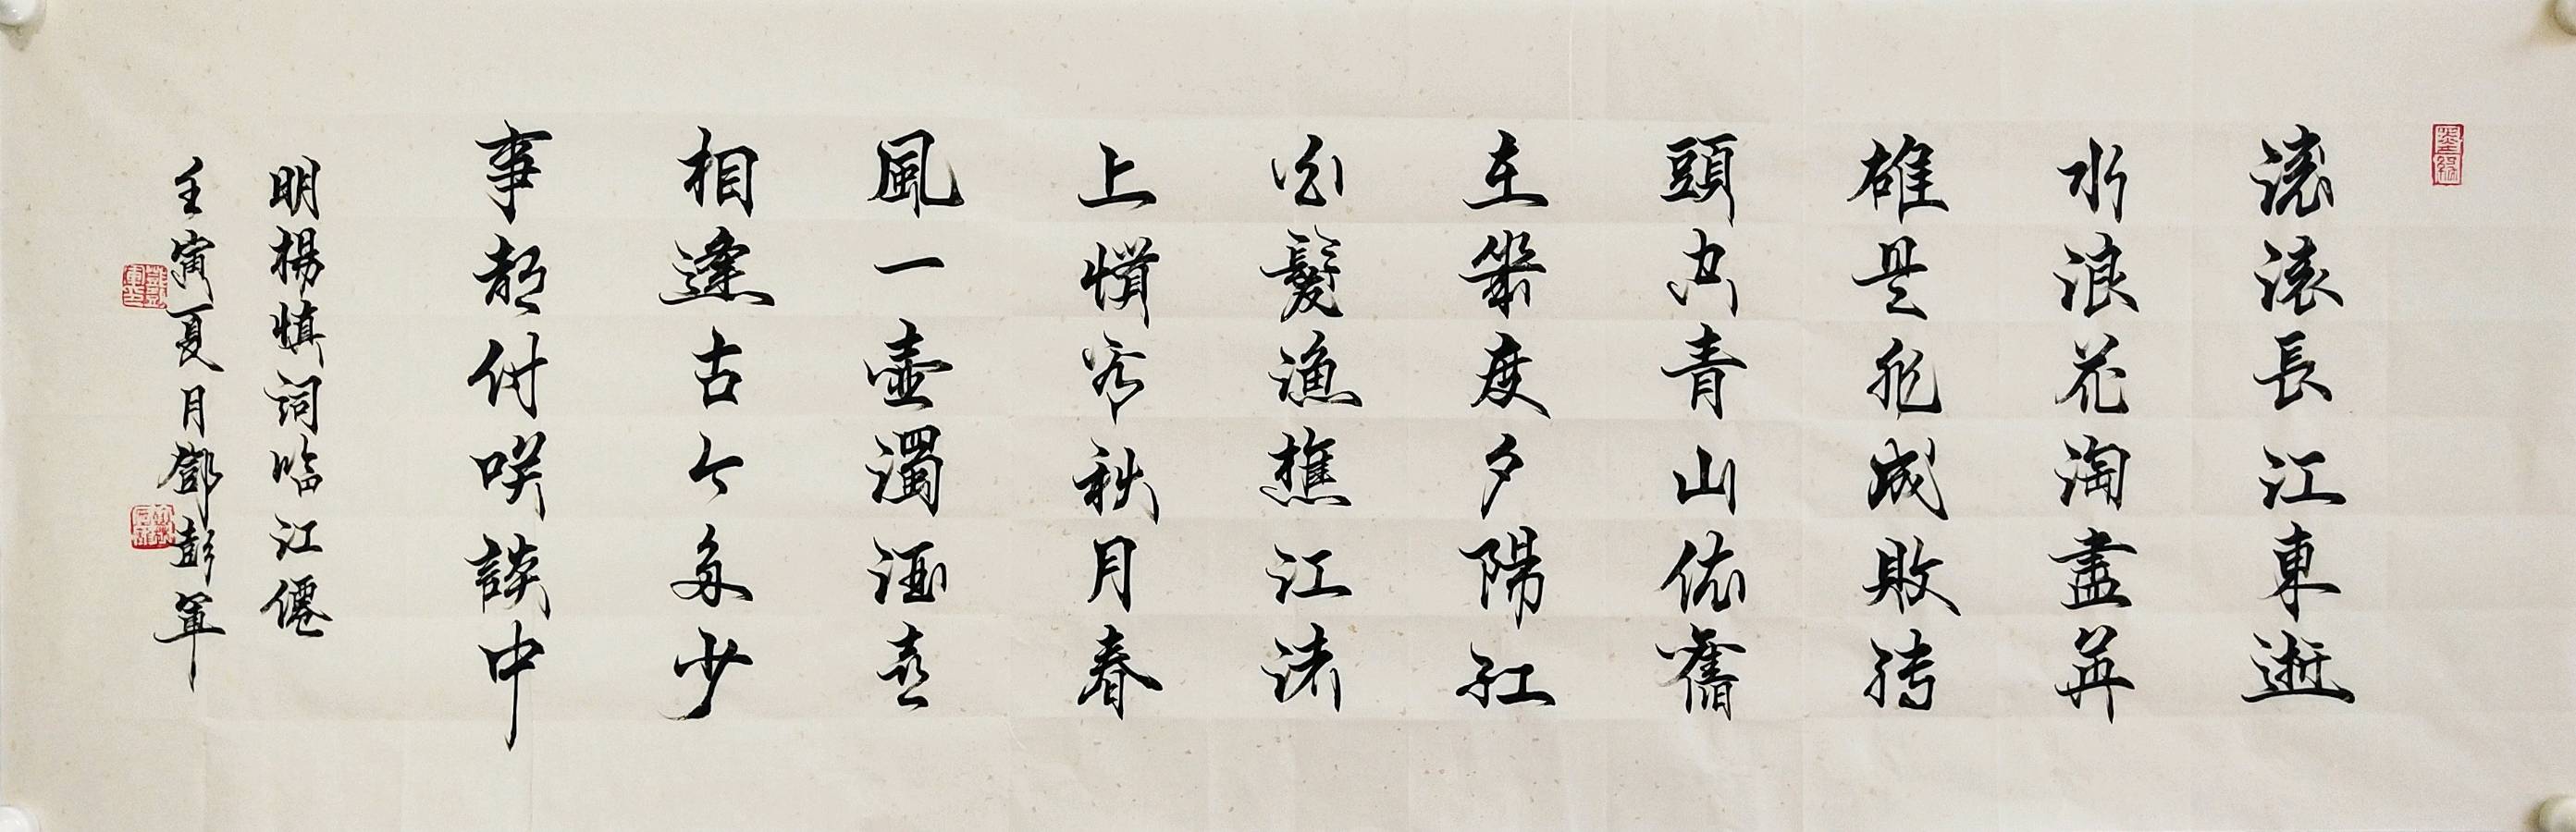 滚滚長江東逝
水浪花淘盡英
雄是非成敗轉
頭空青山依舊
在幾度夕陽紅
白髮漁樵江渚
上慣看秋月春
風一壺濁酒喜
相逢古今多少
事都付咲談中
明楊慎詞臨江僊
壬寅夏月鄧彭軍